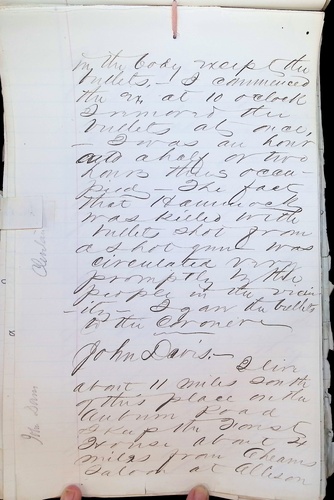 in the body except the
bullets, - I commenced
the Ex at 10 oclock
I removed the
bullets at once,
- I was an hour
and a half or two
hours thus occu-
pied - The fact
that Hammock
was killed with
bullets shot from
a shot gun was
circulated very
promptly by the
people in the vicin-
-ity - I gave the bullets
to the Coroner
John Davis -
I live
about 11 miles south
of this place on the
Auburn Road
I keep the
House about 4
miles from
Saloon at
John Davis